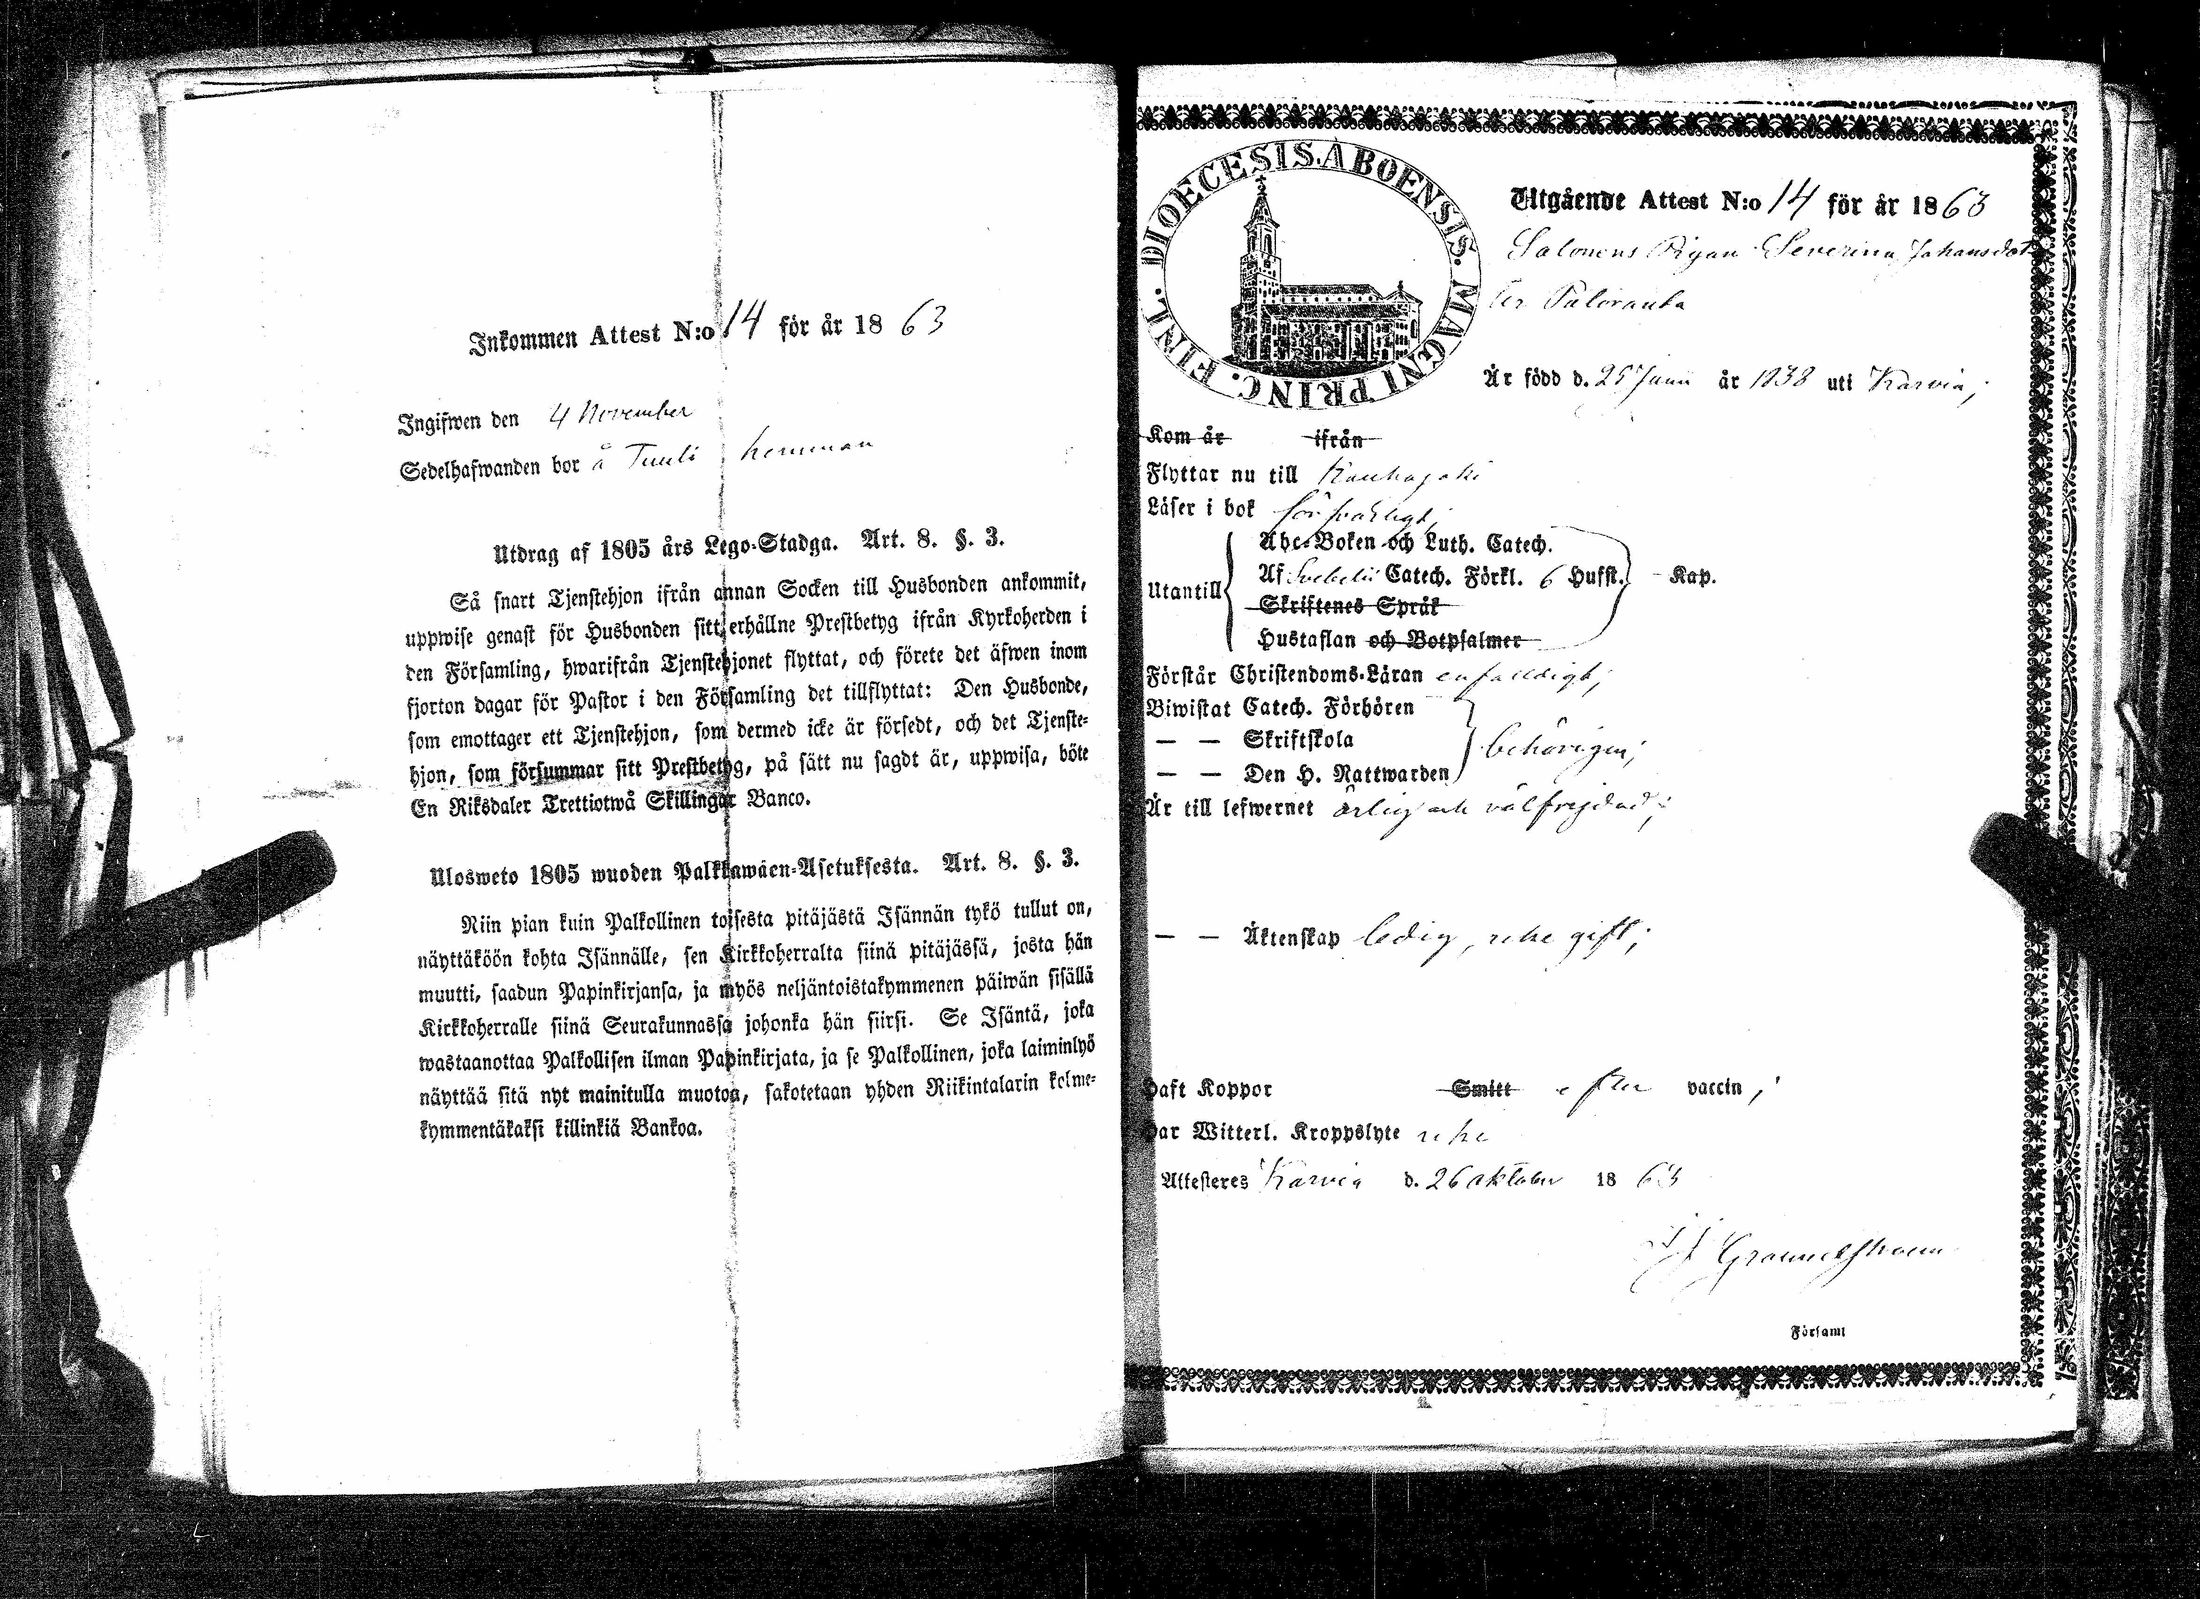 Inkommen Attest N:o 14 för år 1863
Ingifwen den 4 November
Sedelhafwanden bor å Tuuli hemman
Utdrag af 1805 års Lego-Stadga. Art. 8. §. 3.
Så snart Tjenstehjon ifrån annan Socken till Husbonden ankommit,
uppwise genast för Husbonden sitt erhållne Prestbetyg ifrån Kyrkoherden i
den Församling, hwarifrån Tjenstehjonet flyttat, och förete det äfwen inom
fjorton dagar för Pastor i den Församling det tillflyttat: Den Husbonde,
som emottager ett Tjenstehjon, som dermed icke är försedt, och det Tjenste-
hjon, som försummar sitt Prestbetyg, på sätt nu sagdt är, uppwisa, böte
En Riksdaler Trettiotwå Skillingar Banco.
Ulosweto 1805 wuoden Palkkawäen-Asetuksesta. Art. 8. §. 3.
Niin pian kuin Palkollinen toisesta pitäjästä Isännän tykö tullut on,
näyttäköön kohta Isännälle, sen Kirkkoherralta siinä pitäjässä, josta hän
muutti, saadun Papinkirjansa, ja myös neljäntoistakymmenen päiwän sisällä
Kirkkoherralle siinä Seurakunnassa johonka hän siirsi. Se Isäntä, joka
wastaanottaa Palkollisen ilman Papinkirjata, ja se Palkollinen, joka laiminlyö
näyttää sitä nyt mainitulla muotoa, sakotetaan yhden Riikintalarin kolme-
kymmentäkaksi killinkiä Bankoa.
DIOECESIS.ABOENSIS. MAGNI PRINC. FINL.
Utgående Attest N:o 14 för år 1863
Salomens Pigan Severina Johansdot
ter Paloranta
Är född d. 25 Junii år 1838 uti Karvia;
Kom år ifrån
Flyttar nu till Kauhajoki
Läser i bok försvarligt;
Utantill
Abc-Boken och Luth. Catech.
Af Svebelii Catech. Förkl. 6 Hufst. - Kap.
Skriftenes Språk
Hustaflan och Botpsalmer
Förstår Christendoms-Läran enfaldigt;
Biwistat Catech. Förhören
— — Skriftskola behörigen;
— — Den H. Nattwarden
Är till lefwernet ärlig och välfrejdad;
— — Äktenskap ledig, icke gift;
Haft Koppor Smitt efter vaccin;
Har Witterl. Kroppslyte icke
Attesteres Karvia d. 26 oktober 1863
Församl